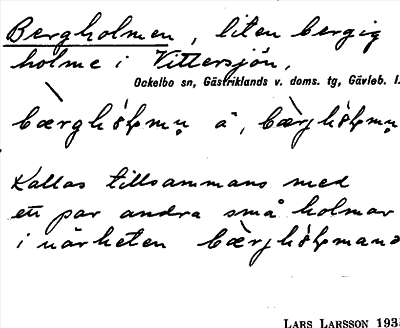 Bergholmen, liten bergig
holme i Vittersjön,
Ockelbo sn, Gästriklands v. doms. tg, Gävleb. l.
å,
Kallas tillsammans med
ett par andra små holmar
i närheten
LARS LARSSON 193